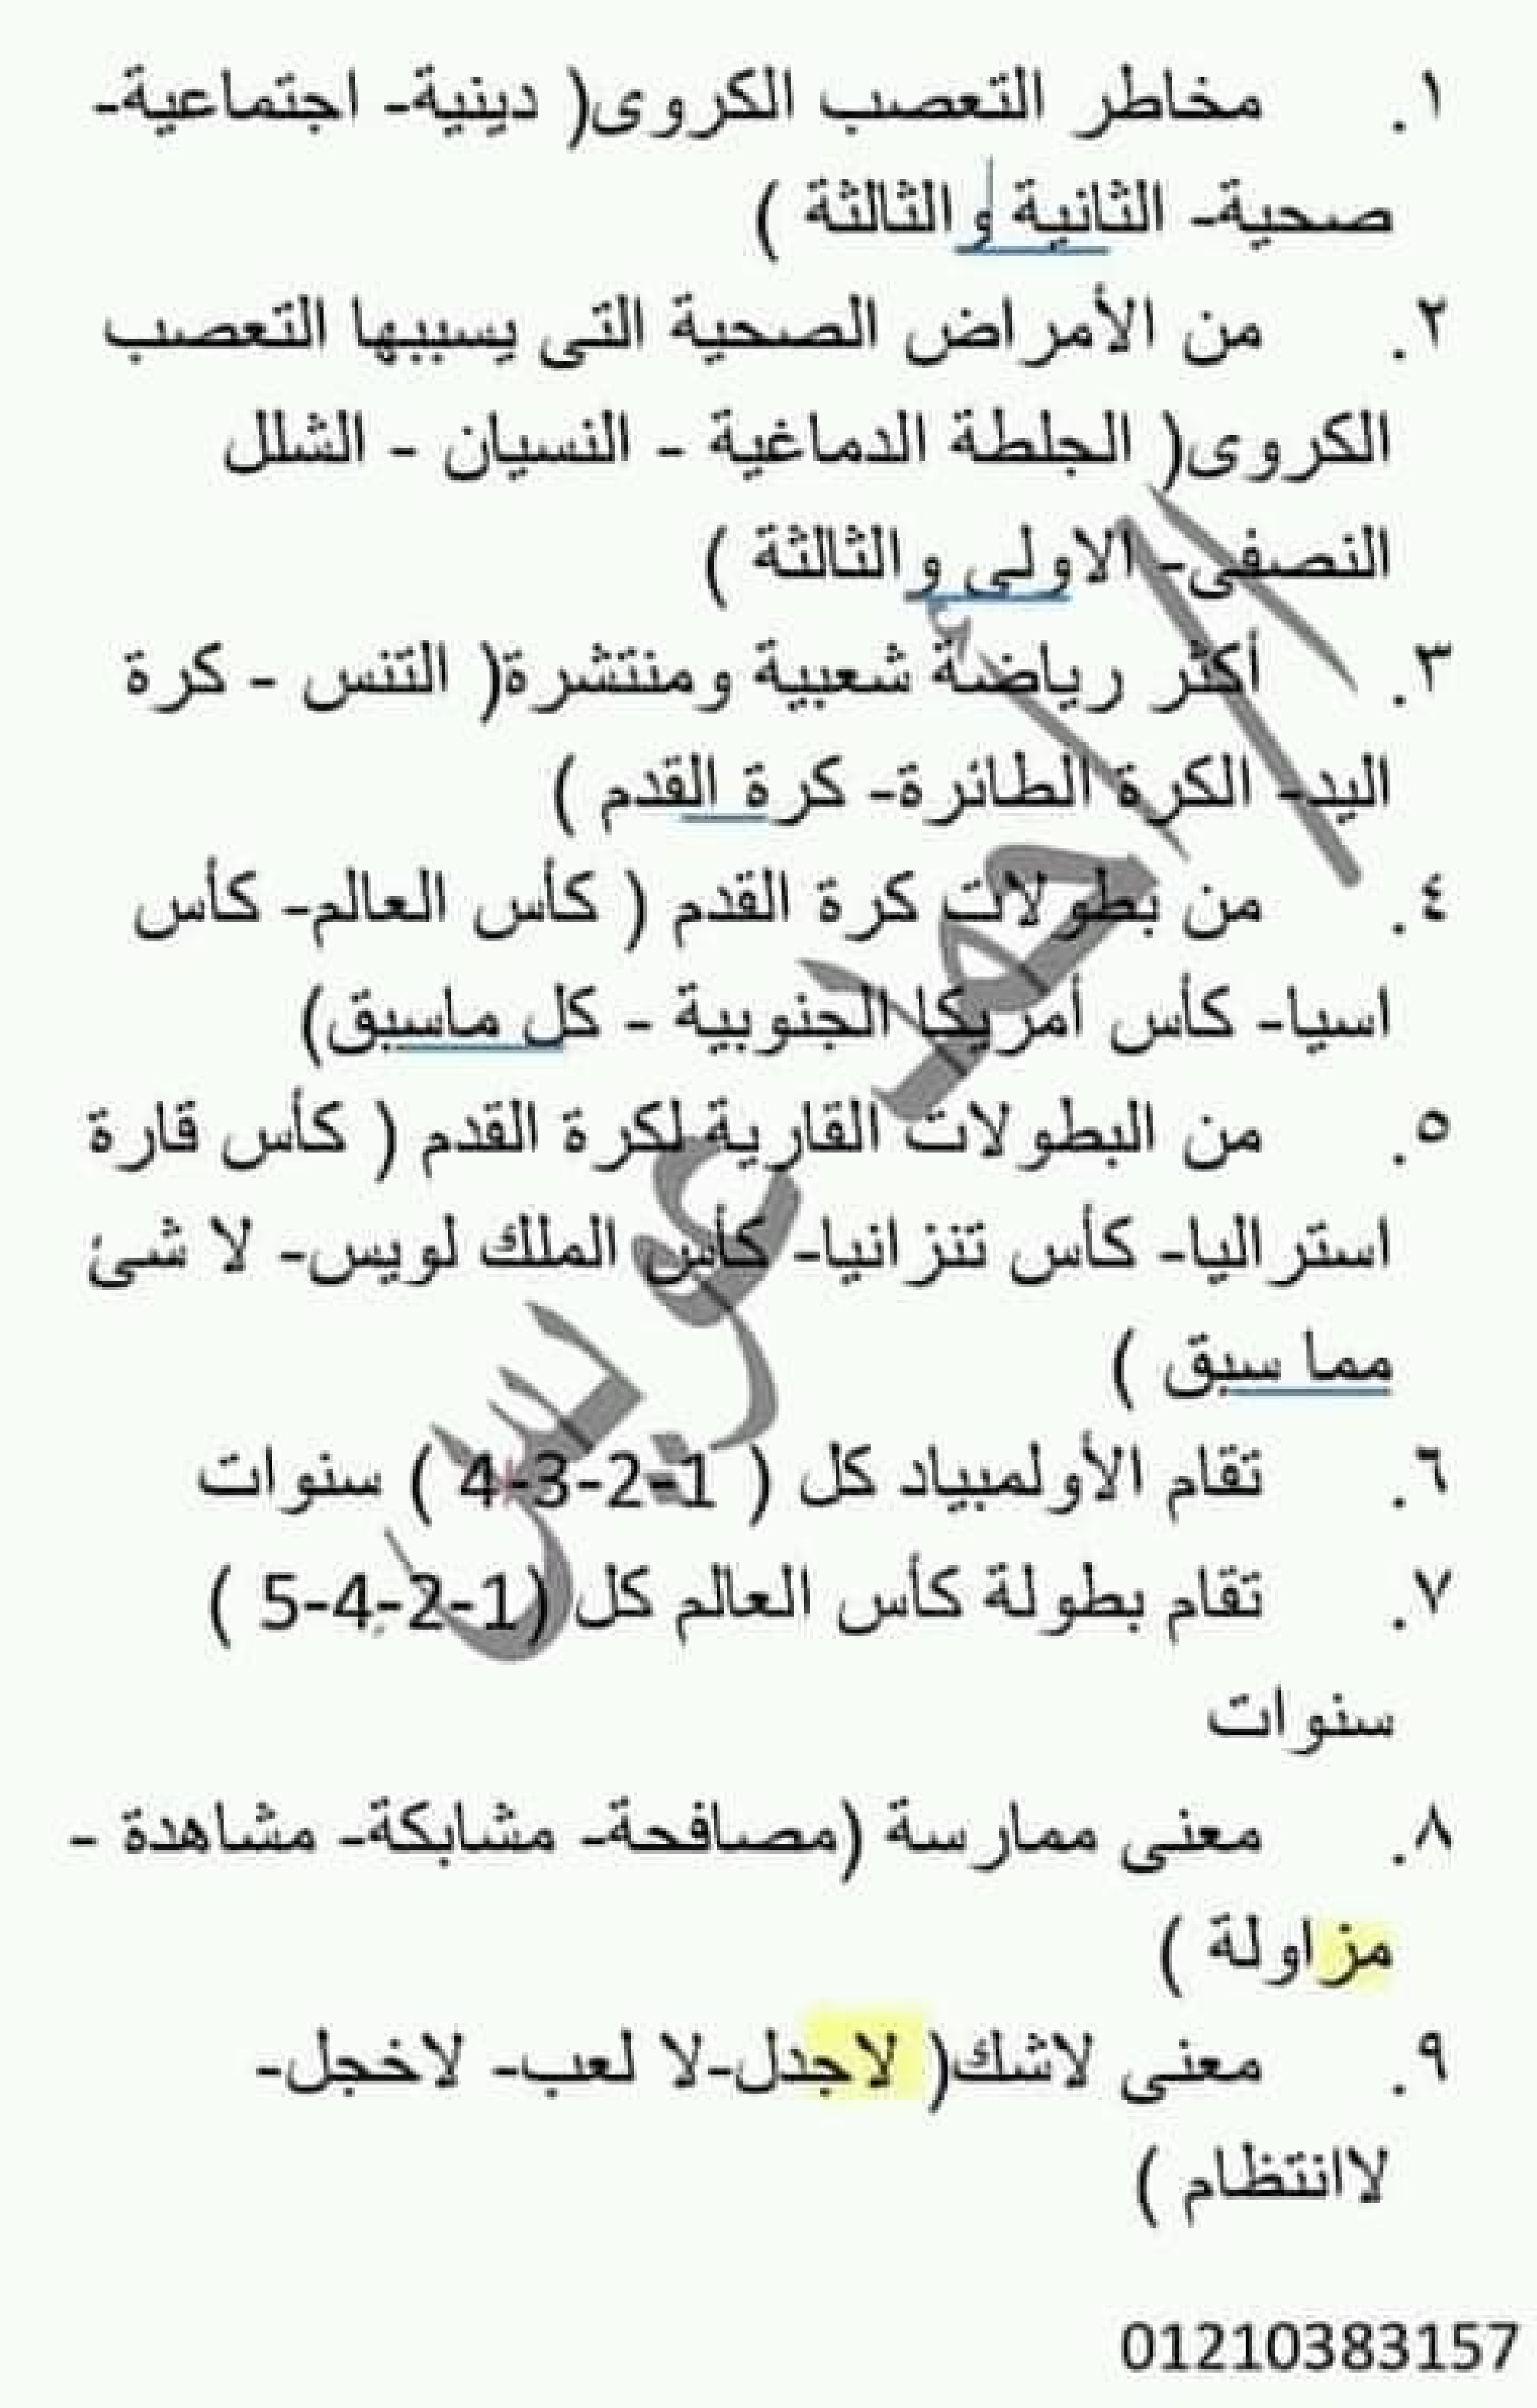 ١. مخاطر التعصب الكروى( دينية- اجتماعية-
صحية- الثانية والثالثة )
٢. من الأمراض الصحية التى يسببها التعصب
الكروى( الجلطة الدماغية - النسيان - الشلل
النصفى- الاولى والثالثة )
٣. أكثر رياضة شعبية ومنتشرة( التنس - كرة
اليد- الكرة الطائرة- كرة القدم )
٤. من بطولات كرة القدم ( كأس العالم- كأس
اسيا- كأس أمريكا الجنوبية - كل ماسبق)
٥. من البطولات القارية لكرة القدم ( كأس قارة
استراليا- كأس تنزانيا- كأس الملك لويس- لا شئ
مما سبق )
٦. تقام الأولمبياد كل ( 1-2-3-4 ) سنوات
٧. تقام بطولة كأس العالم كل (1-2-4-5 )
سنوات
٨. معنى ممارسة (مصافحة- مشابكة- مشاهدة -
مزاولة )
٩. معنى لاشك( لاجدل-لا لعب- لاخجل-
لاانتظام )
01210383157